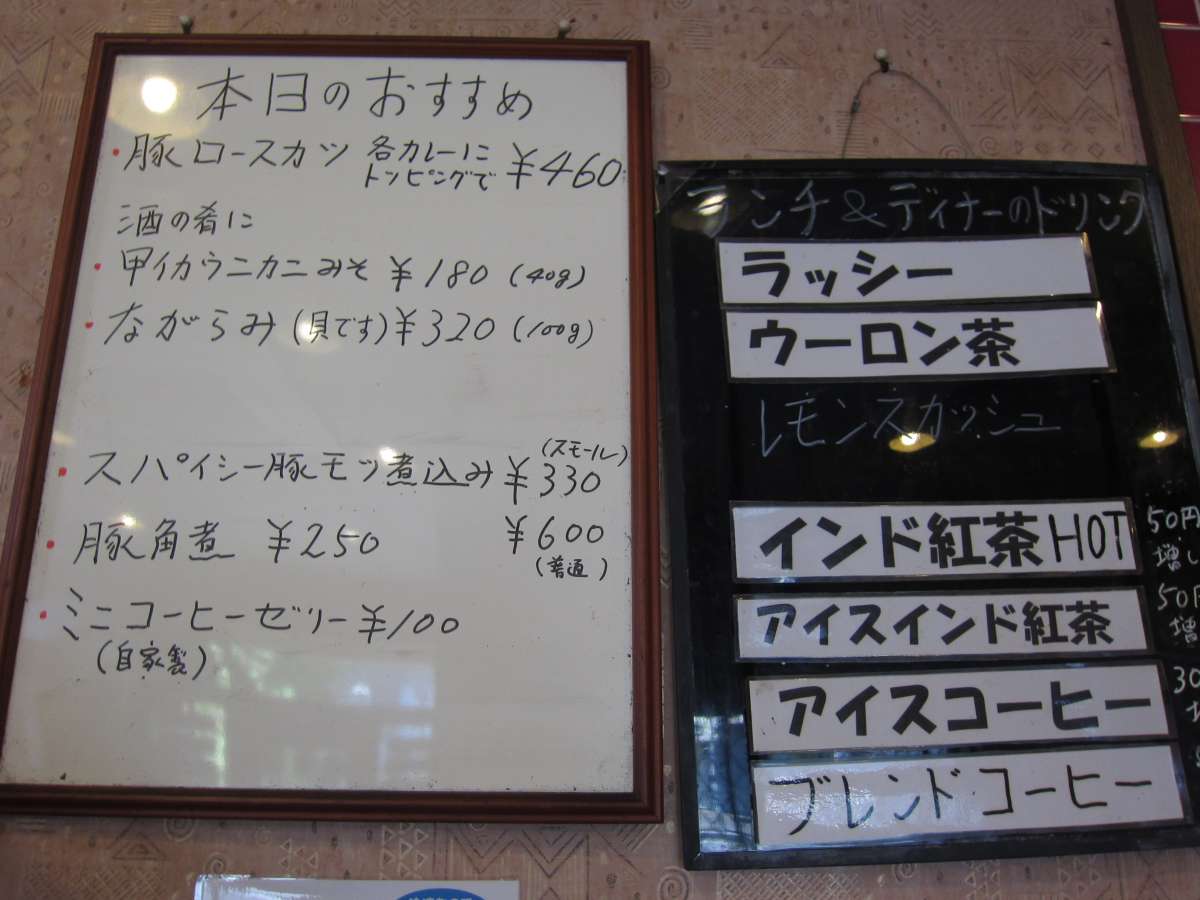 本日のおすすめ
・豚ロースカツ 各カレーにトッピングで ¥460
酒の肴に
・甲イカウニカニみそ ¥180 (40g)
・ながらみ (貝です) ¥320 (100g)
・スパイシー豚モツ煮込み ¥330 (スモール)
¥600 (普通)
・豚角煮 ¥250
・ミニコーヒーゼリー ¥100
(自家製)
ランチ&ディナーのドリンク
ラッシー
ウーロン茶
レモンスカッシュ
インド紅茶HOT 50円増し
アイスインド紅茶 50円増
アイスコーヒー 30
ブレンドコーヒー